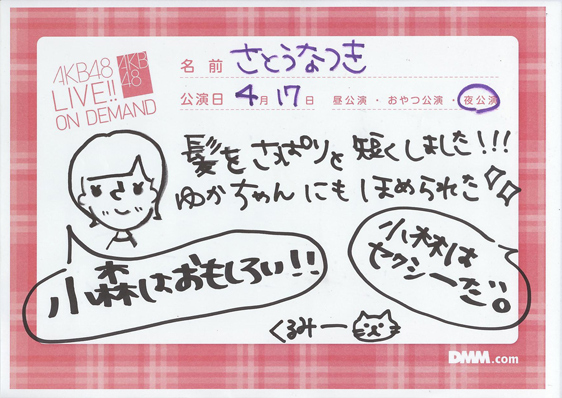 AKB48
LIVE!!
ON DEMAND
AKB
48
名前 さとうなつき
公演日 4月17日 昼公演・おやつ公演・夜公演
髪をさっぱりと短くしました!!!
ゆかちゃんにもほめられた
小森はおもしろい!!
小林は
セクシーだ。
くるみー
DMM.com